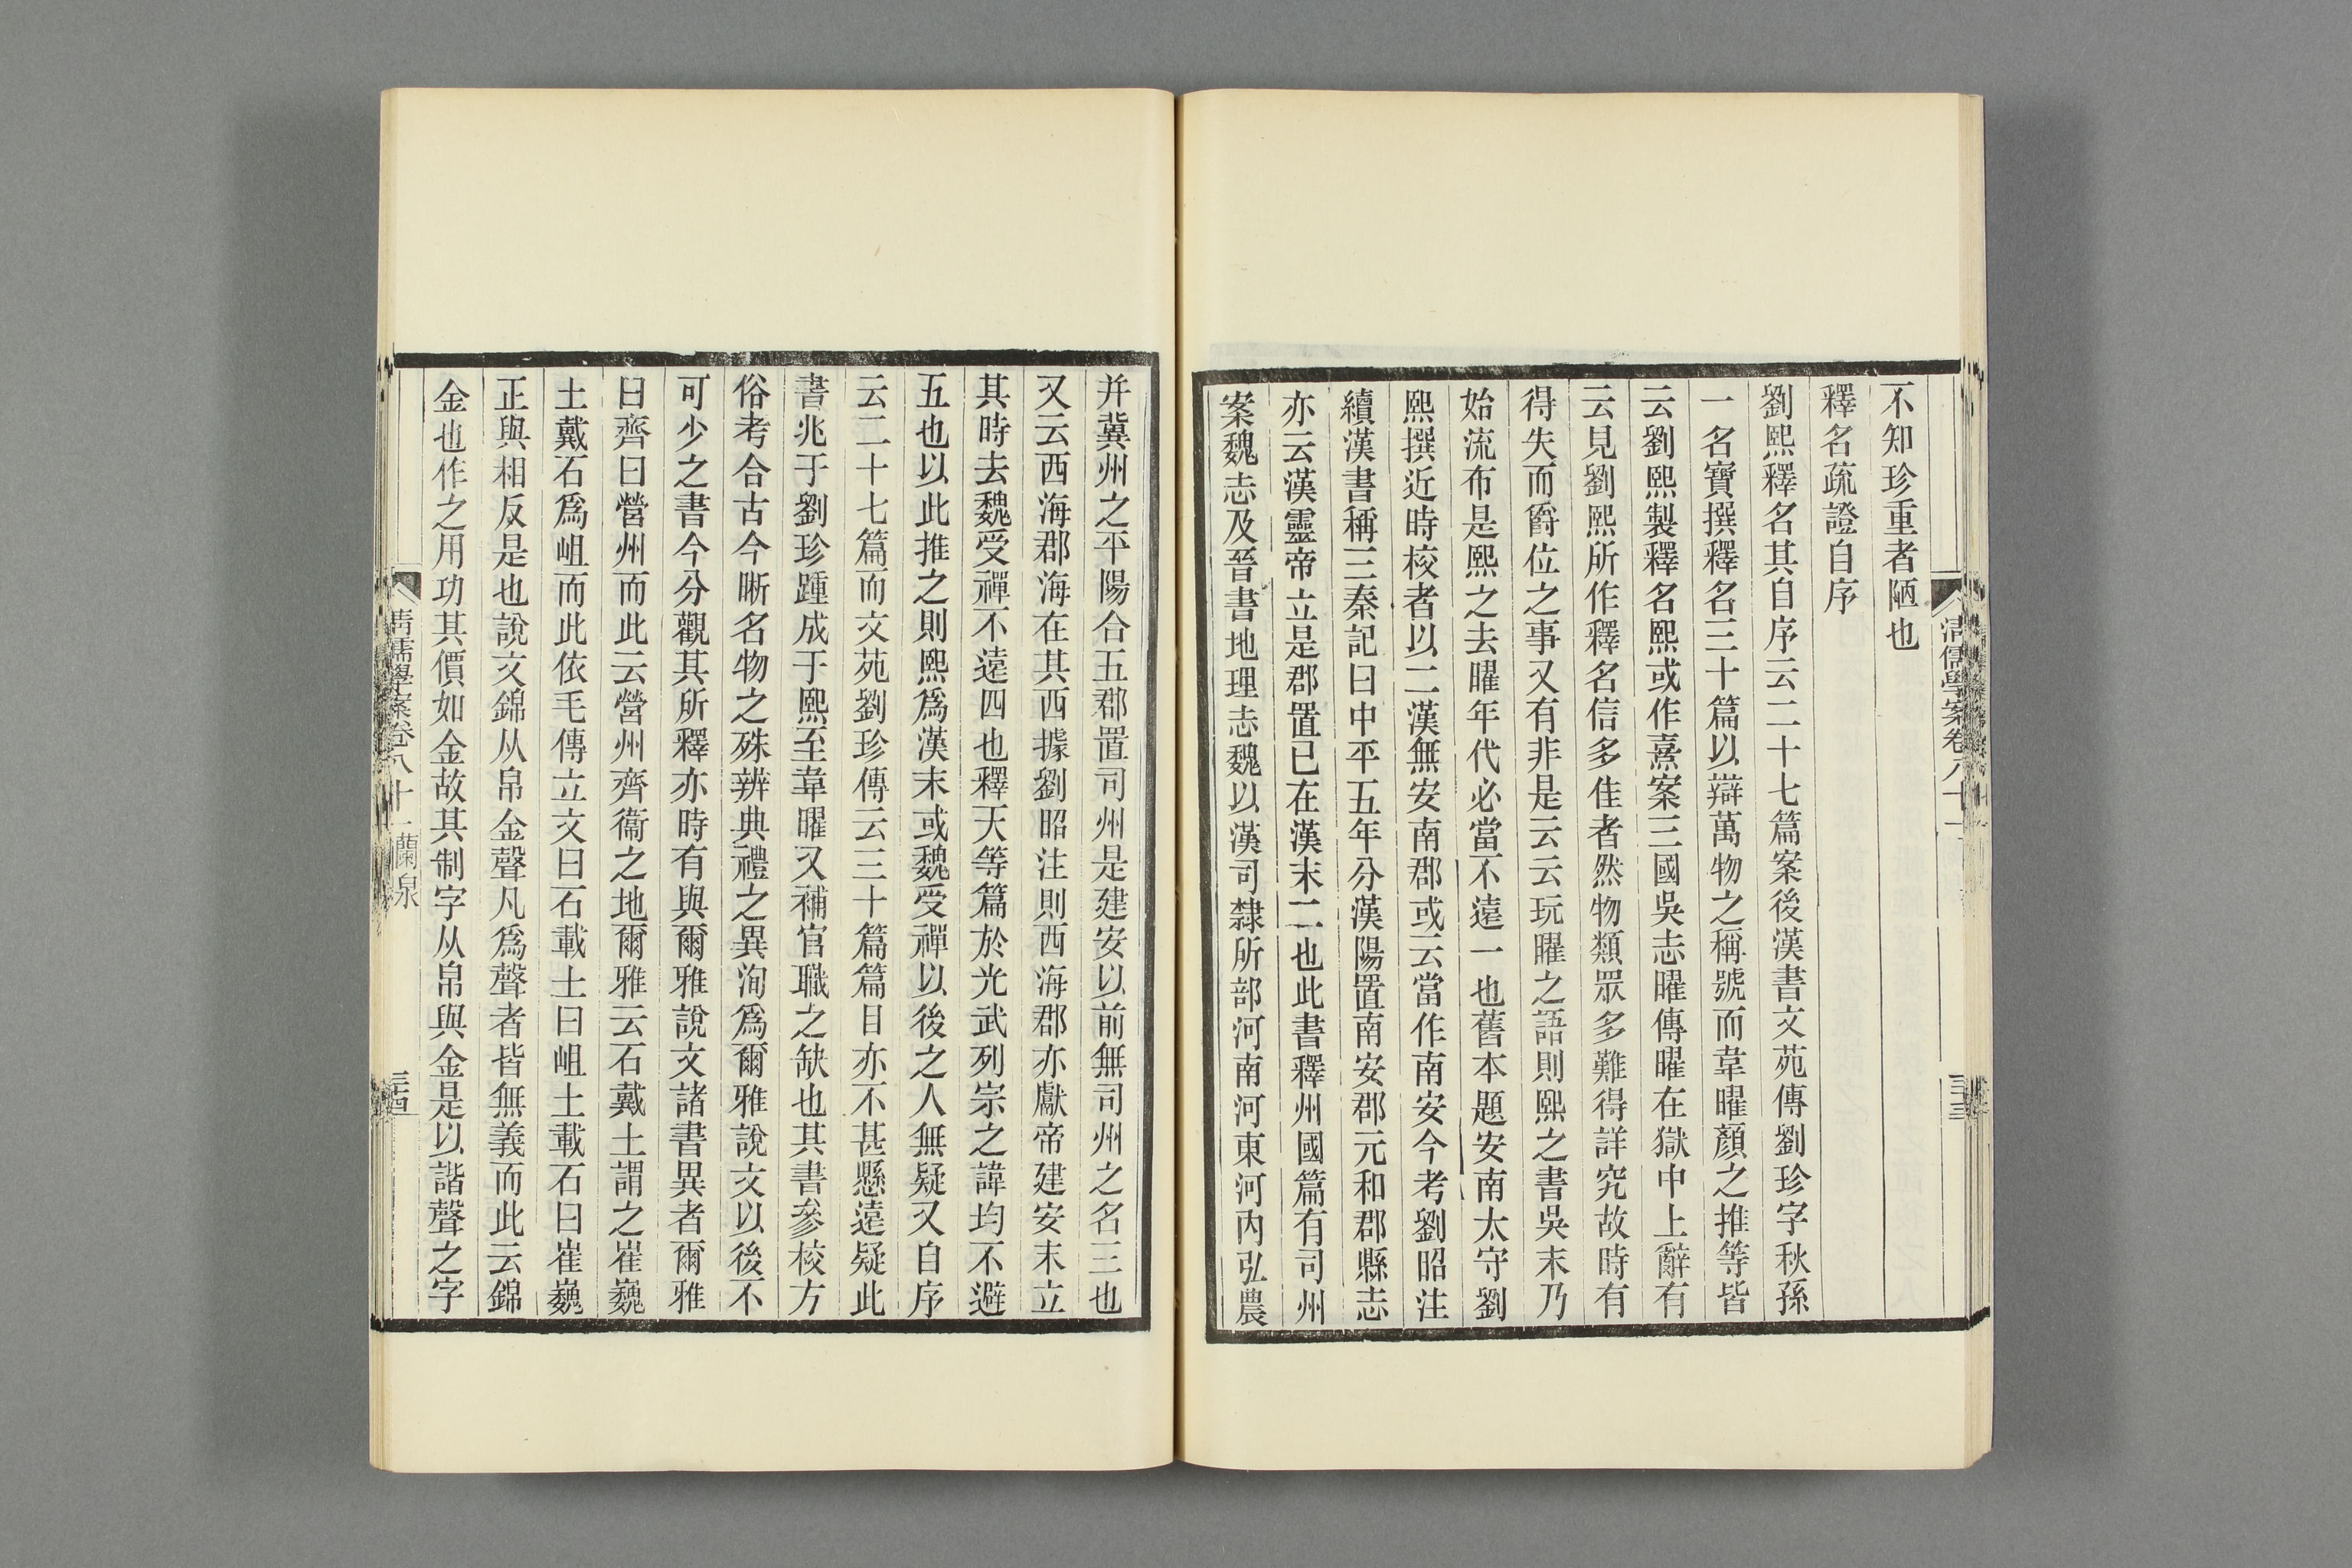 清儒學案卷八十一
三十三
不知珍重者陋也
釋名疏證自序
劉熙釋名其自序云二十七篇案後漢書文苑傳劉珍字秋孫
一名寶撰釋名三十篇以辯萬物之稱號而韋曜顏之推等皆
云劉熙製釋名熙或作熹案三國吳志曜傳曜在獄中上辭有
云見劉熙所作釋名信多佳者然物類眾多難得詳究故時有
得失而爵位之事又有非是云云玩曜之語則熙之書吳末乃
始流布是熙之去曜年代必當不遠一也舊本題安南太守劉
熙撰近時校者以二漢無安南郡或云當作南安今考劉昭注
續漢書稱三秦記曰中平五年分漢陽置南安郡元和郡縣志
亦云漢靈帝立是郡置已在漢末二也此書釋州國篇有司州
案魏志及晉書地理志魏以漢司隸所部河南河東河內弘農
并冀州之平陽合五郡置司州是建安以前無司州之名三也
又云西海郡海在其西據劉昭注則西海郡亦獻帝建安末立
其時去魏受禪不遠四也釋天等篇於光武列宗之諱均不避
五也以此推之則熙爲漢末或魏受禪以後之人無疑又自序
云二十七篇而文苑劉珍傳云三十篇篇目亦不甚懸遠疑此
書兆于劉珍踵成于熙至韋曜又補官職之缺也其書參校方
俗考合古今晰名物之殊辨典禮之異洵爲爾雅說文以後不
可少之書今分觀其所釋亦時有與爾雅說文諸書異者爾雅
曰齊曰營州而此云營州齊衞之地爾雅云石戴土謂之崔巍
土戴石爲岨而此依毛傳立文曰石載土曰岨土載石曰崔巍
正與相反是也說文錦从帛金聲凡爲聲者皆無義而此云錦
金也作之用功其價如金故其制字从帛與金是以諧聲之字
清儒學案卷八十一 蘭泉
三十四